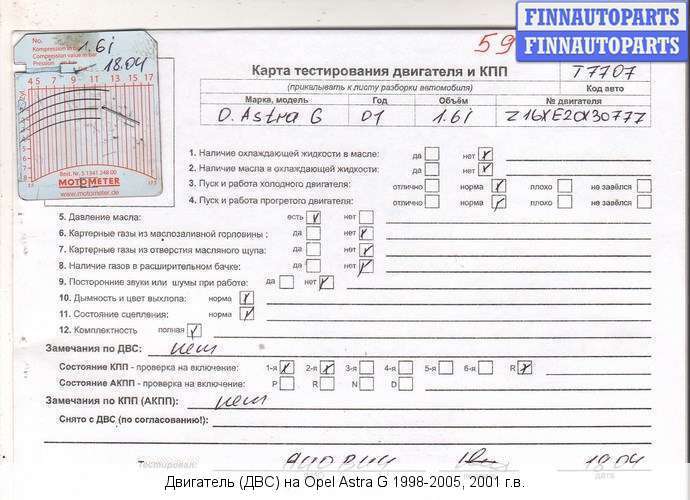 FINNAUTOPARTS
FINNAUTOPARTS
No.
Kompression in bar
Compression value in bar
Pression
1.6i
18.04
4 5 7 9 11 13 15 17
Best. Nr. 5 1341 248 00
MOTOMETER
www.motometer.de
59
Карта тестирования двигателя и КПП T7707
(прикалывать к листу разборки автомобиля) Код авто
Марка, модель Год Объём № двигателя
O. Astra G 01 1.6i Z16XE20X30777
1. Наличие охлаждающей жидкости в масле: да нет
2. Наличие масла в охлаждающей жидкости: да нет
3. Пуск и работа холодного двигателя: отлично норма плохо не завёлся
4. Пуск и работа прогретого двигателя: отлично норма плохо не завёлся
5. Давление масла: есть нет
6. Картерные газы из маслозаливной горловины : да нет
7. Картерные газы из отверстия масляного щупа: да нет
8. Наличие газов в расширительном бачке: да нет
9. Посторонние звуки или шумы при работе: да нет
10. Дымность и цвет выхлопа: норма
11. Состояние сцепления: норма
12. Комплектность полная
Замечания по ДВС: нет
Состояние КПП - проверка на включение: 1-я 2-я 3-я 4-я 5-я 6-я R
Состояние АКПП - проверка на включение: P R N D
Замечания по КПП (АКПП): нет
Снято с ДВС (по согласованию!):
Тестировал: 18.04
дата
Двигатель (ДВС) на Opel Astra G 1998-2005, 2001 г.в.